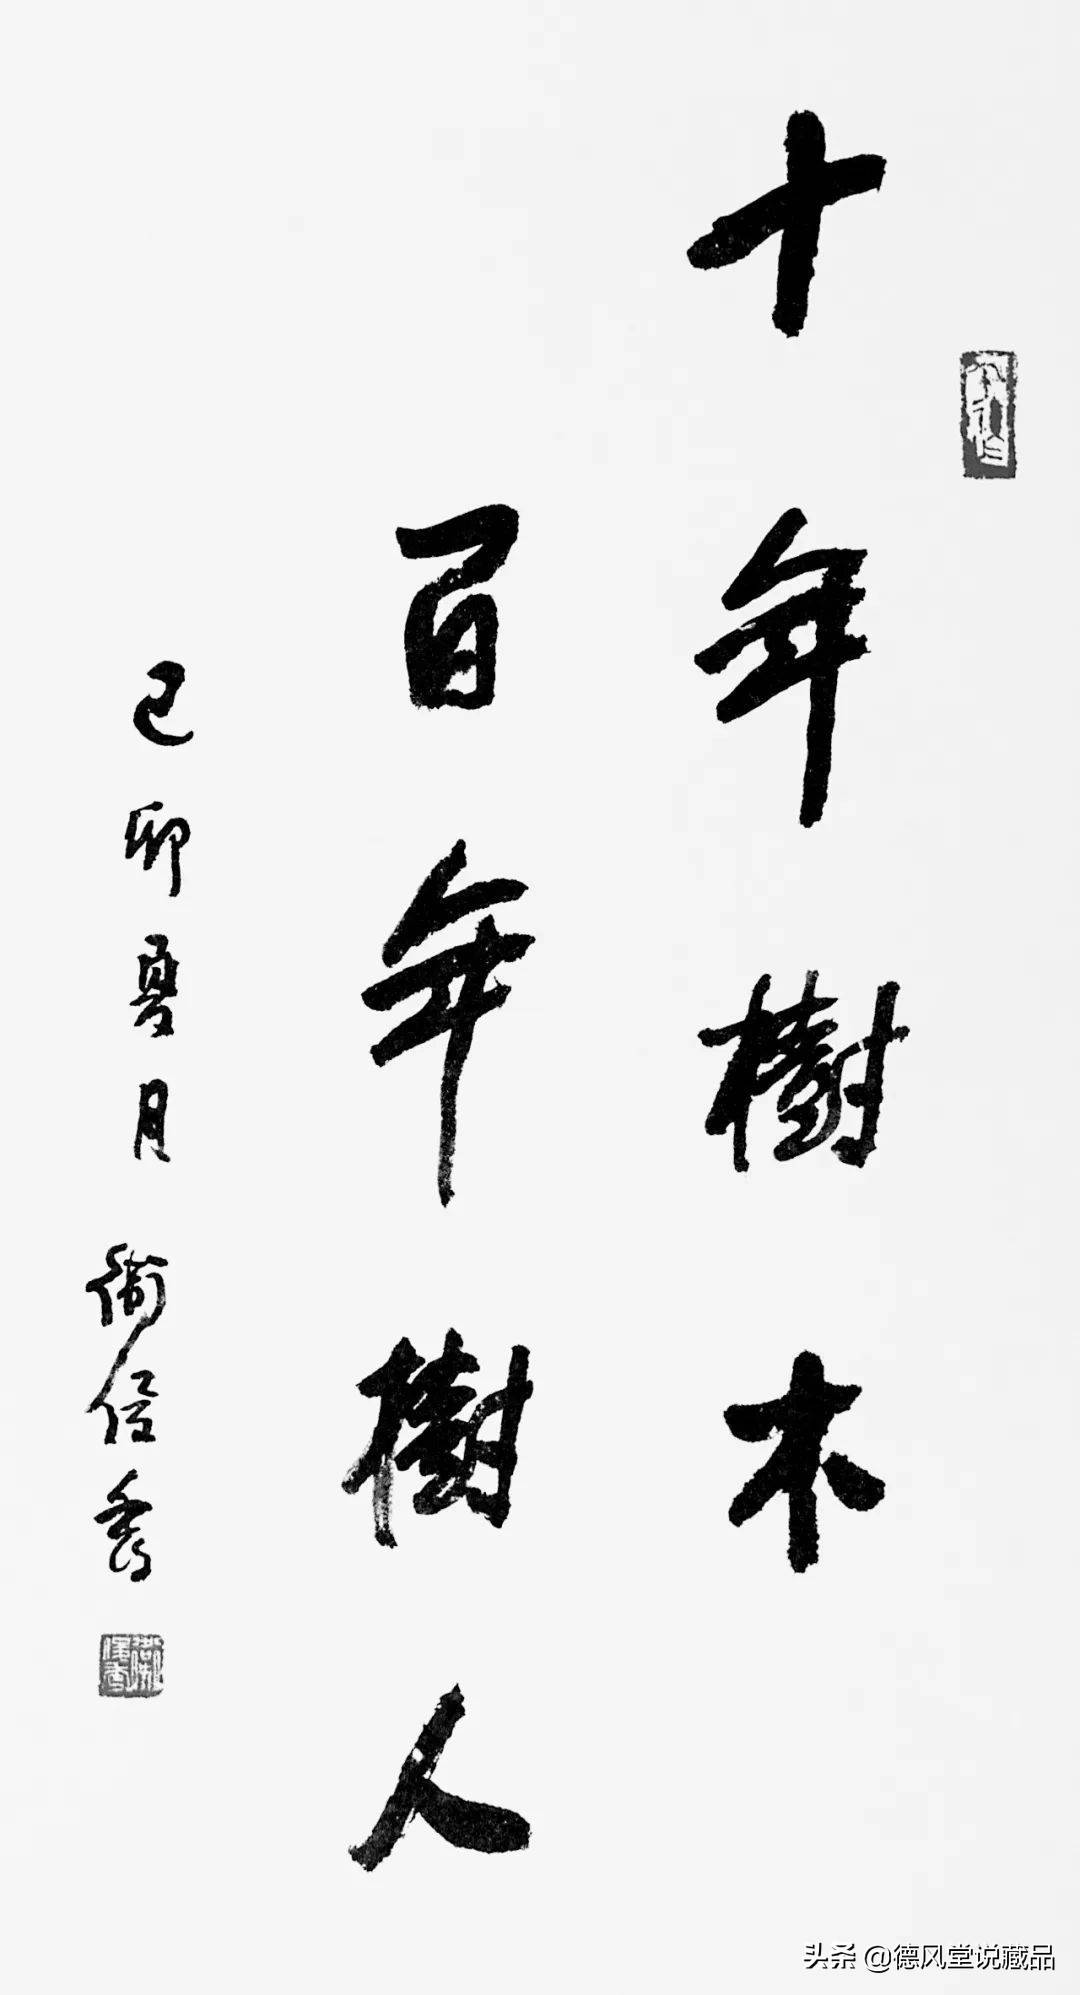 十年樹木
百年樹人
己卯夏月 衛俊秀
头条 @德风堂说藏品